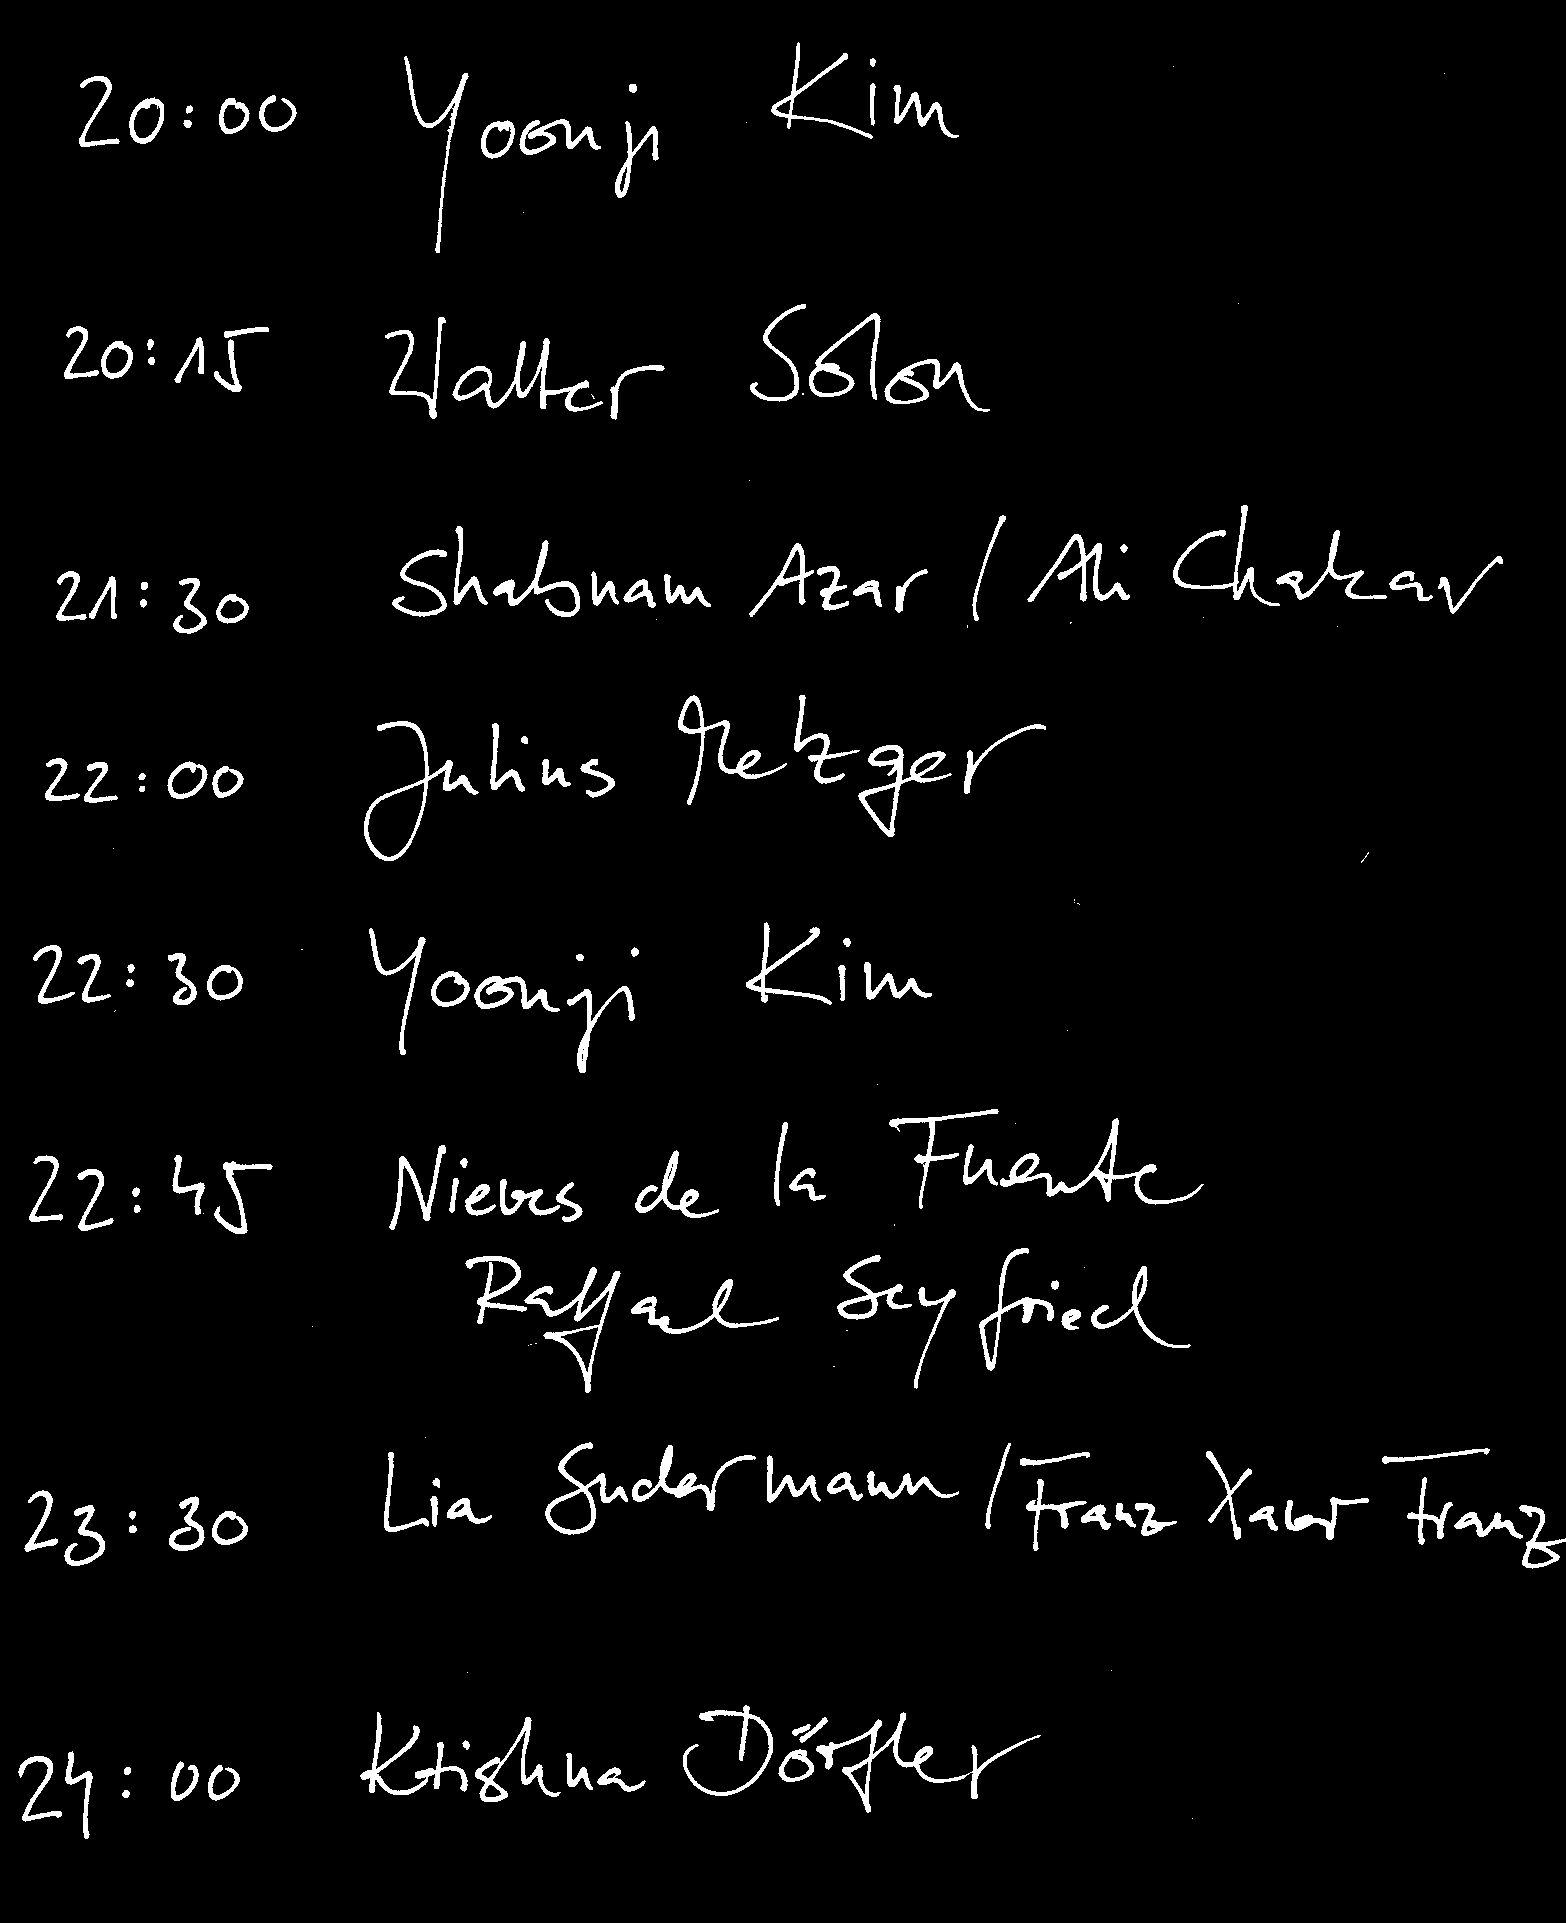 20:00 Yoonji Kim
20:15 Walter Solon
21:30 Shabnam Azar / Ali Chakav
22:00 Julius Metzger
22:30 Yoonji Kim
22:45 Nieves de la Fuente
Raffael Seyfried
23:30 Lia Sudermann / Franz Xaver Franz
24:00 Krishna Dörfler